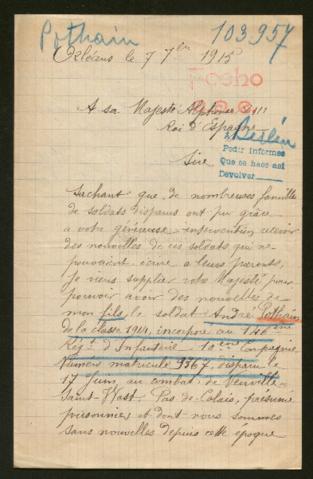 Pothain 103957
Orléans le 7 7bre 1915
Fecho
A sa Majesté Alphonse XIII
Roi d'Espagne
Berlín
Pedir informes
Que se hace así
Devolver
Sire
Sachant que de nombreuses famille
de soldats disparus ont pu grâce
a votre généreuse intervention recevoir
des nouvelles de ces soldats qui ne
pouvaient écrire a leurs parents,
je viens supplier votre Majesté pour
pouvoir avoir des nouvelles de
mon fils le soldat André Pothain
de la classe 1914, incorporé au 146ème
Régt d'Infanterie 10ème Compagnie
Numéro matricule 9367, disparu le
17 Juin au combat de Neuville
Saint-Wast Pas de Calais, présumé
prisonnier et dont nous sommes
sans nouvelles depuis cette époque